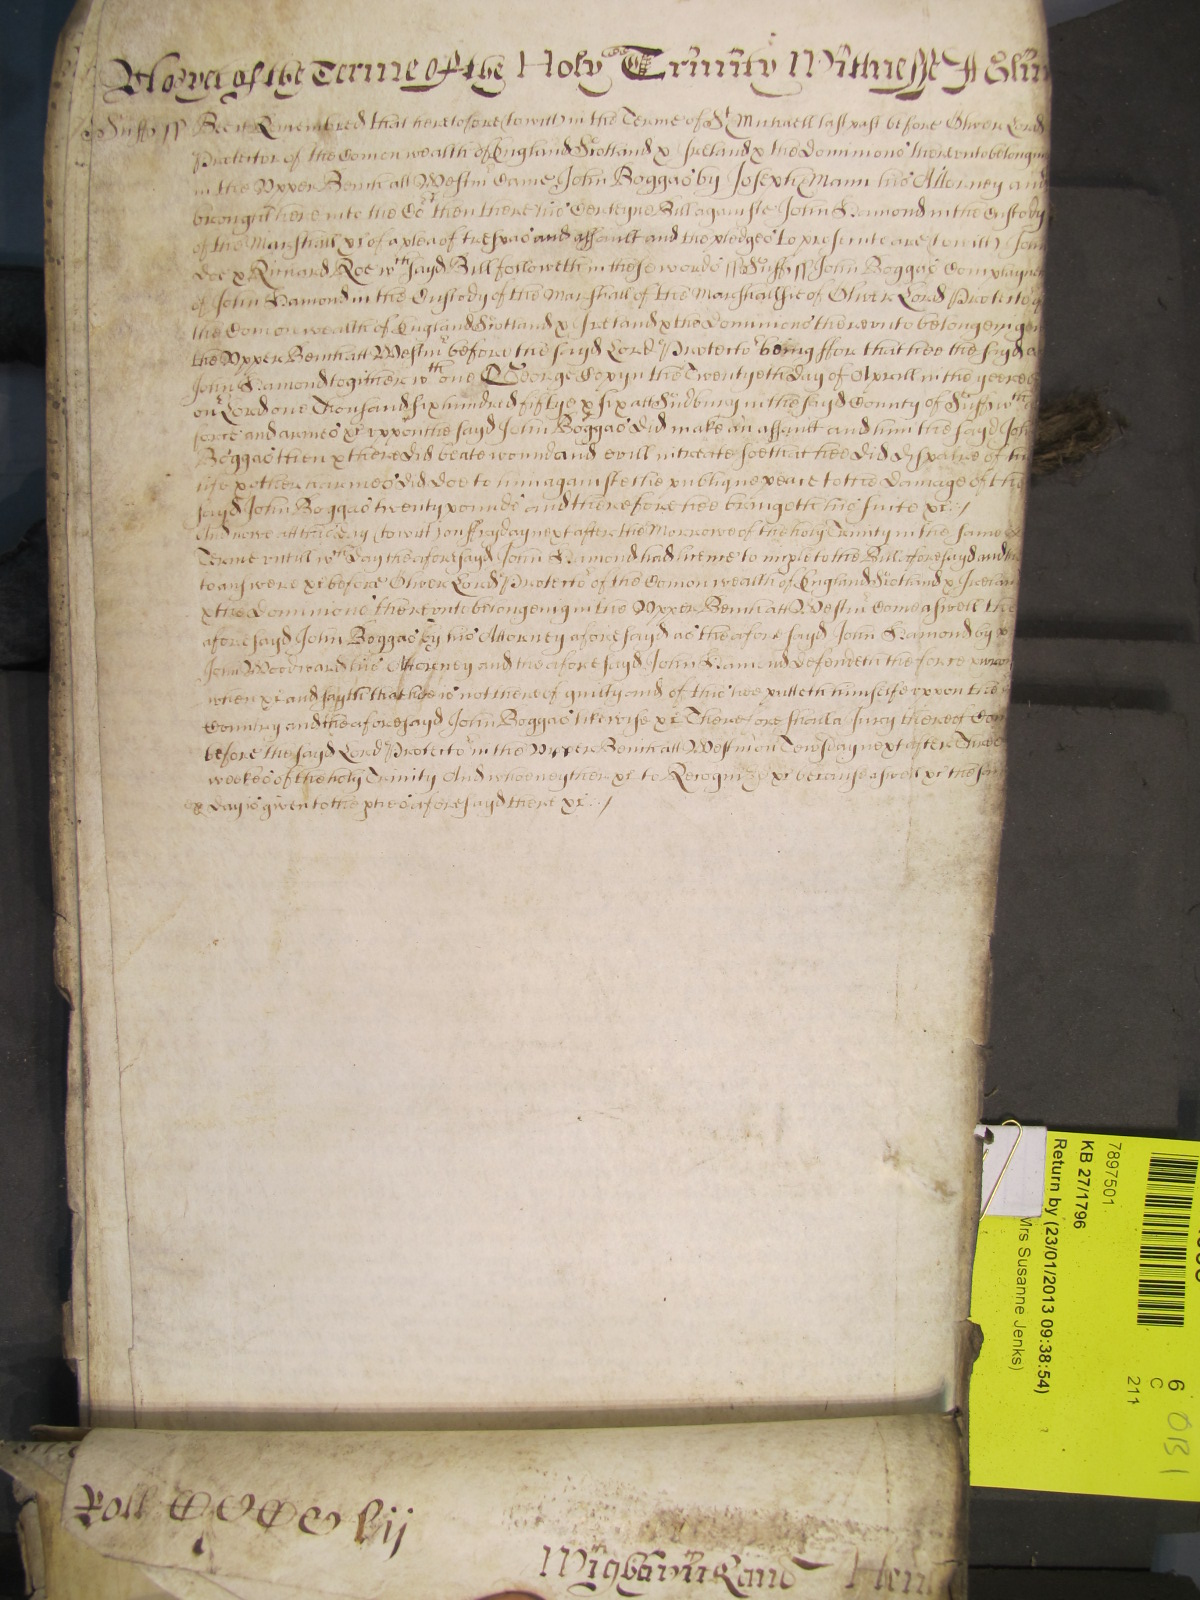 Plees yet of the Terme of the Holy Trinity Witnesse
Suff ss Bee it Remembred that heretofore (to witt) in the Terme of St Michaell last past before Oliver Lord
Protector of the Comon wealth of England Scotland & Ireland & the Dominions thereunto belonging
in the Upper Bench att Westmr Came John Boggas by Joseph Mann his Attorney and
brought here into the Cort then there his Certeyne Bill againste John Hamond in the Custody
of the Marshall &c of a plea of trespas and assault and the pledges to prosecute are (to witt) John
Doe & Richard Roe wch sayd Bill followeth in these words ss Suff ss John Boggas Complayneth
of John Hamond in the Custody of the Marshall of the Marshallsie of Oliver Lord Protector of
the Comon wealth of England Scotland & Ireland & the Dominions thereunto belongeing
the Upper Bench att Westmr before the sayd Lord Protector being ffor that hee the sayd
John Hamond togither wth one George Coxy in the Twentyeth day of Aprill in the yeere
our Lord one Thousand six hundred fiftye & six att Sudbury in the sayd County of Suff wth
force and armes &c uppon the sayd John Boggas did make an assault and him the sayd John
Boggas then & there did beate wound and evill intreate soe that hee did dispaire of his
life & other harmes did doe to him againste the publique peace to the Damage of the
sayd John Boggas twenty pounds and therefore hee bringeth his suite &c /
And now att this day (to witt) on ffryday next after the Morrowe of the holy Trinity in the same
Terme untill wch day the aforesayd John Hamond had lycence to imple to the Bill aforesayd and
to answere &c before Oliver Lord Protector of the Comon wealth of England Scotland & Ireland
& the Dominions thereunto belongeing in the Upper Bench att Westmr Come aswell the
aforesayd John Boggas by his Attorney aforesayd as the aforesayd John Hamond by
John Woodward his Attorney and the aforesayd John Hamond defendeth the force
when &c and sayth that hee is not thereof guilty and of this hee putteth himselfe uppon the
Country and the aforesayd John Boggas likewise &c Therefore should a Jury thereof Come
before the sayd Lord Protector in the Upper Bench att Westmr on Tewsday next after Three
weekes of the holy Trinity And who neyther &c to Recognize &c because aswell &c the same
day is given to the pties aforesayd there &c /
Roll
7897501
KB 27/1796
Return by (23/01/2013 09:38:54)
Mrs Susanne Jenks)
6
C
211